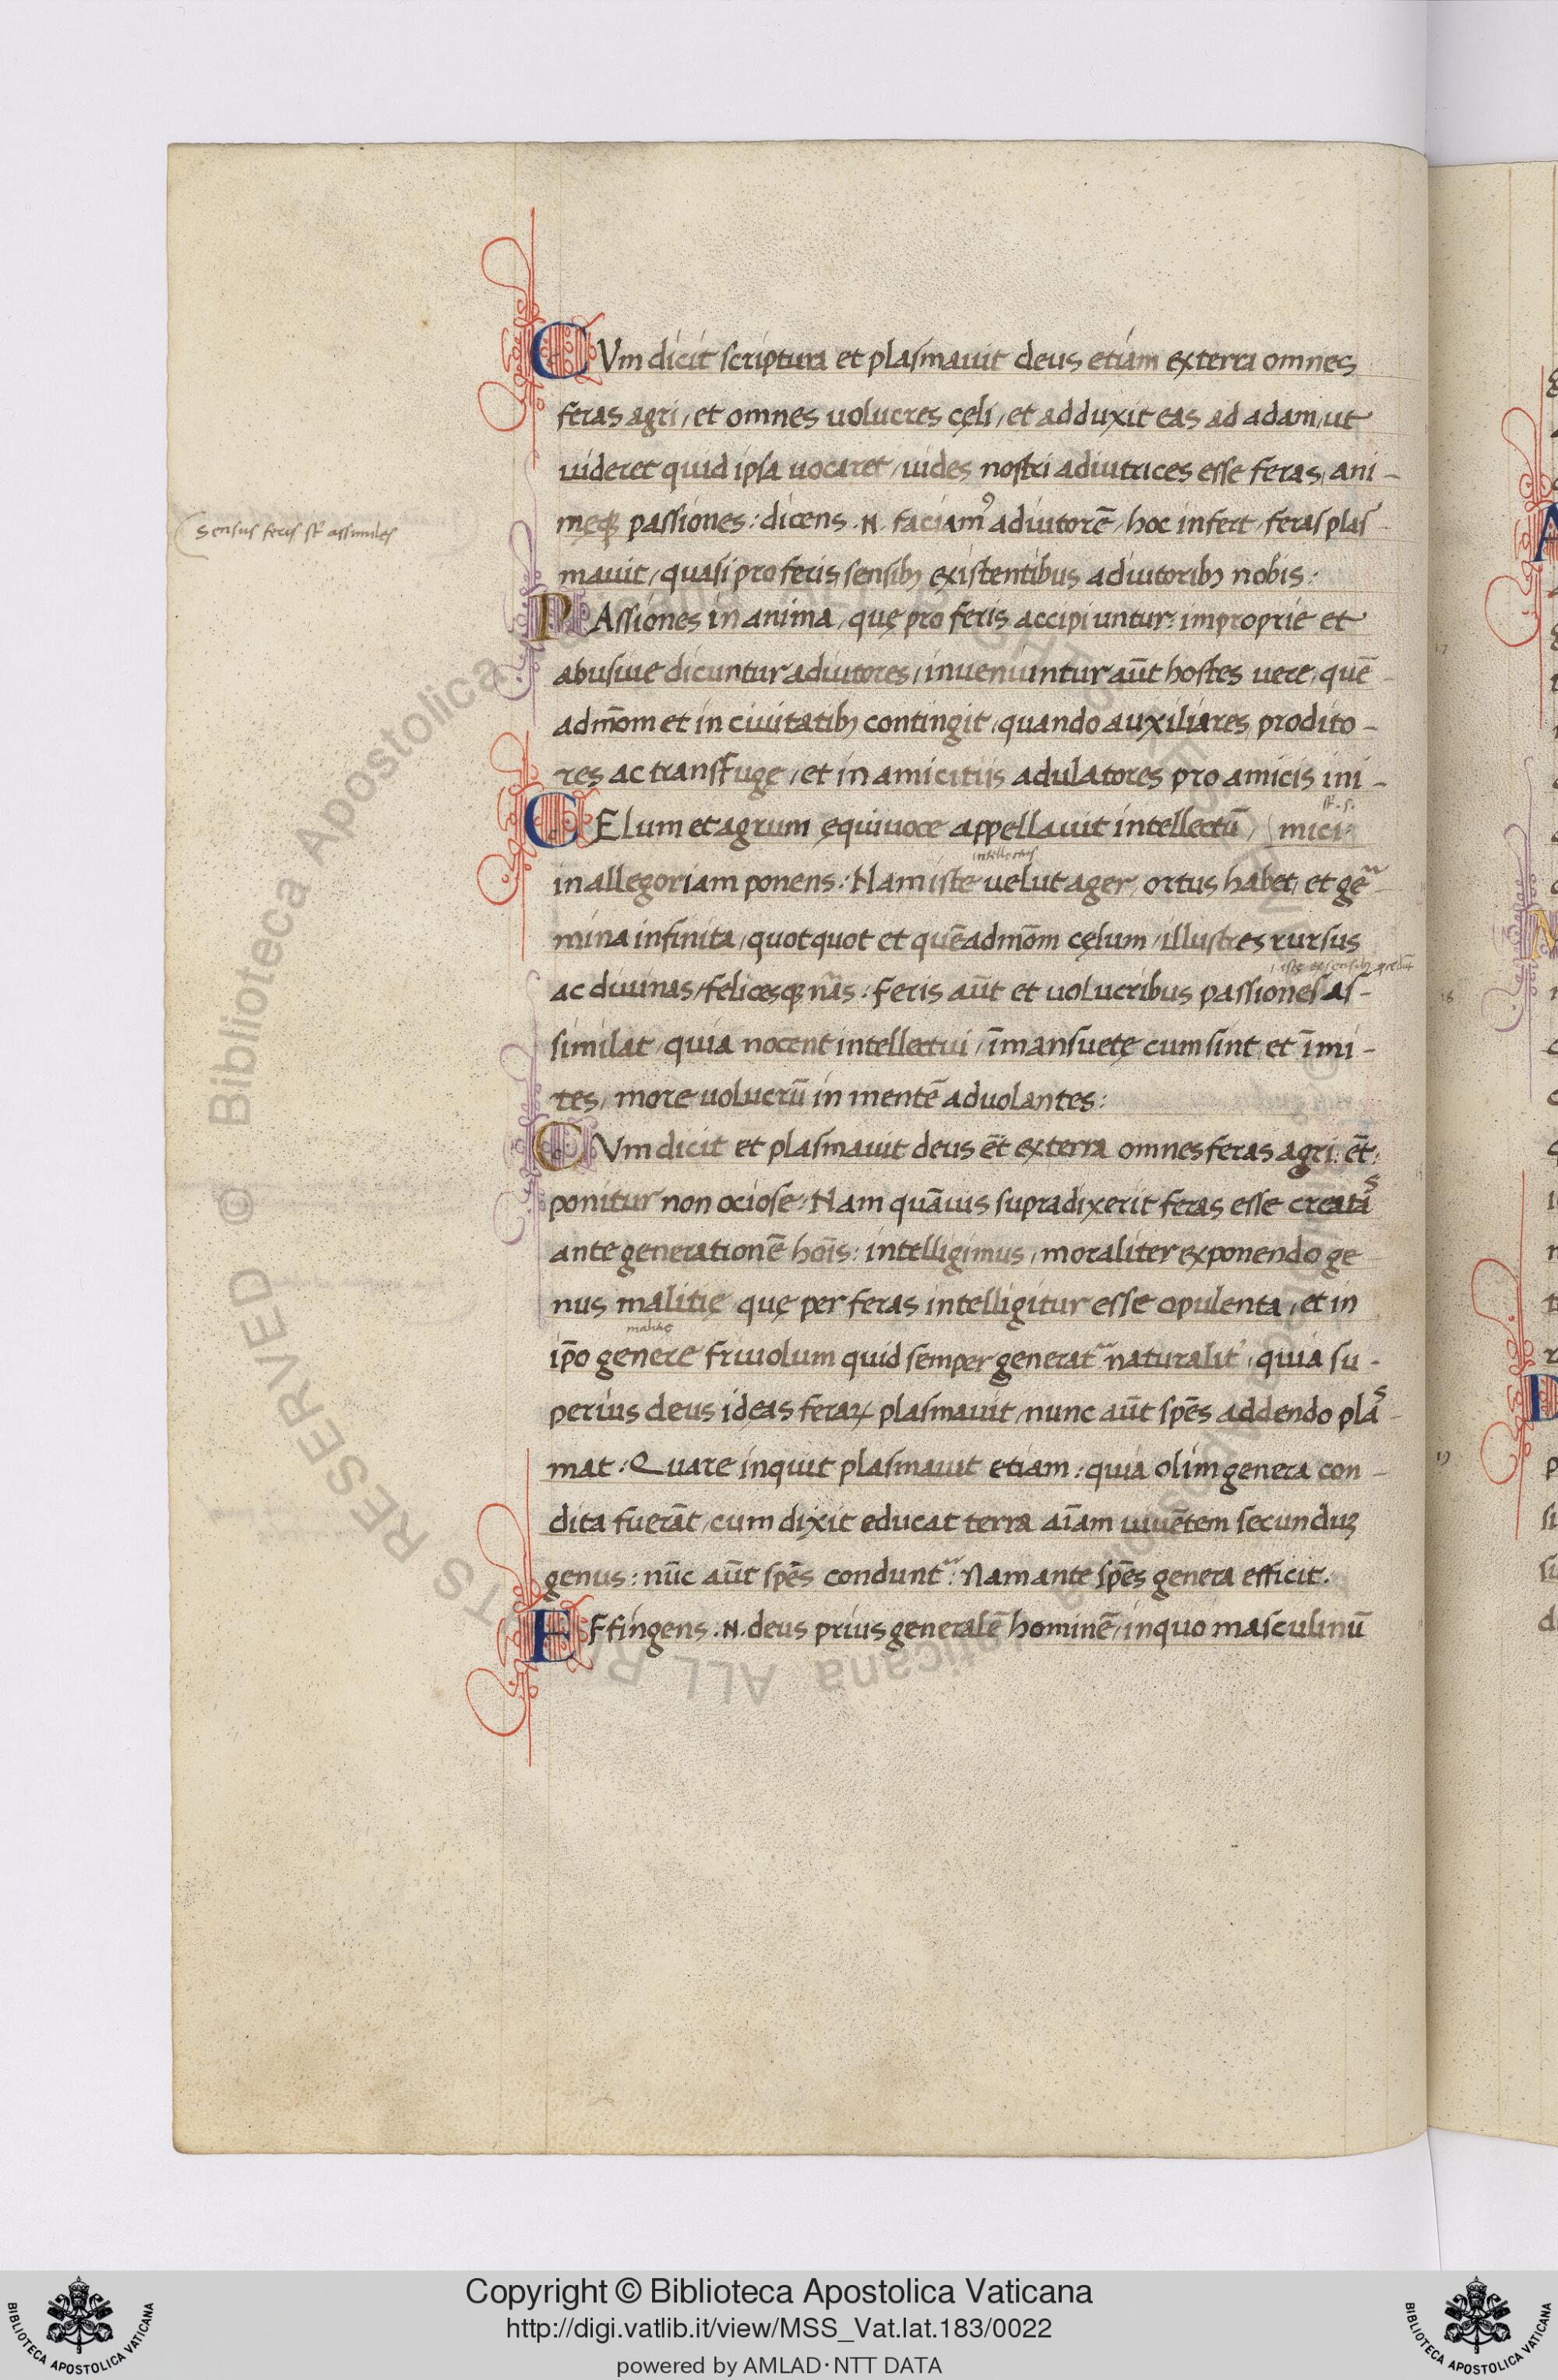 CVm dicit scriptura et plasmauit deus etiam ex terra omnes
feras agri, et omnes uolucres cęli, et adduxit eas ad adam, ut
uideret quid ipsa uocaret, uides nostri adiutrices esse feras, ani-
męq; passiones: dicens .N. faciamꝰ adiutorē, hoc infert, feras plas-
Sensus feris st̄ assimiles
mauit, quasi pro feris sensibꝫ existentibus adiutoribꝫ nobis:
PAssiones in anima, quę pro feris accipiuntur: improprie et
abusiue dicuntur adiutores, inueniuntur aūt hostes uere, quē-
admōm et in ciuitatibꝫ contingit, quando auxiliares, prodito-
res ac transfuge, et in amicitiis adulatores pro amicis ini-
CElum et agrum ęquiuoce appellauit intellectū, (mici
intellectus
in allegoriam ponens: Nam iste uelut ager, ortus habet, et ge-
mina infinita, quotquot et quēadmōm cęlum, illustres rursus
ac diuinas, felicesq; nās: feris aūt et uolucribus passiones as-
similat, quia nocent intellectui, īmansuetę cum sint, et īmi-
tes, more uolucrū in mentē aduolantes:
CVm dicit et plasmauit deus ēt ex terra omnes feras agri: ēt:
ponitur non ociose: Nam quāuis supra dixerit feras esse creatas
ante generationē hoīs: intelligimus, moraliter exponendo ge
nus malitię quę per feras intelligitur esse opulenta, et in
malitię
ip̄o genere friuolum quid semper generat᷑ naturalit᷑, quia su-
perius deus ideas feraꝝ plasmauit, nunc aūt spēs addendo plas-
mat: Quare inquit plasmauit etiam: quia olim genera con-
dita fuerāt, cum dixit educat terra aīam uiuētem secunduꝫ
genus: nūc aūt spēs condunt᷑: Nam ante spēs genera efficit:
EFfingens .N. deus prius generalē hominē, in quo masculinū
Copyright © Biblioteca Apostolica Vaticana
http://digi.vatlib.it/view/MSS_Vat.lat.183/0022
powered by AMLAD·NTT DATA
BIBLIOTECA APOSTOLICA VATICANA
BIBLIOTECA APOSTOLICA VATICANA